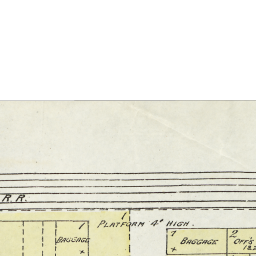 R.R.
1
PLATFORM 4' HIGH.
1
BAGGAGE
+
7
BAGGAGE
+
2
OFF'S